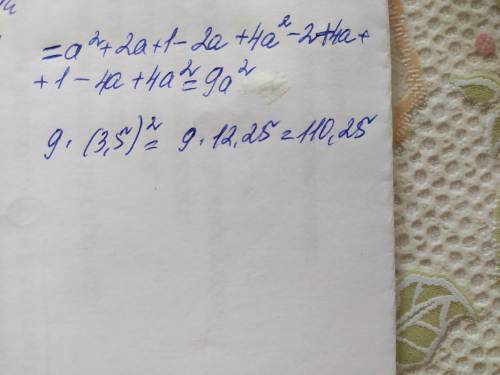 = a² + 2a + 1 - 2a + 4a² - 2 + 4a +
+ 1 - 4a + 4a² = 9a²
9 · (3,5)² = 9 · 12,25 = 110,25